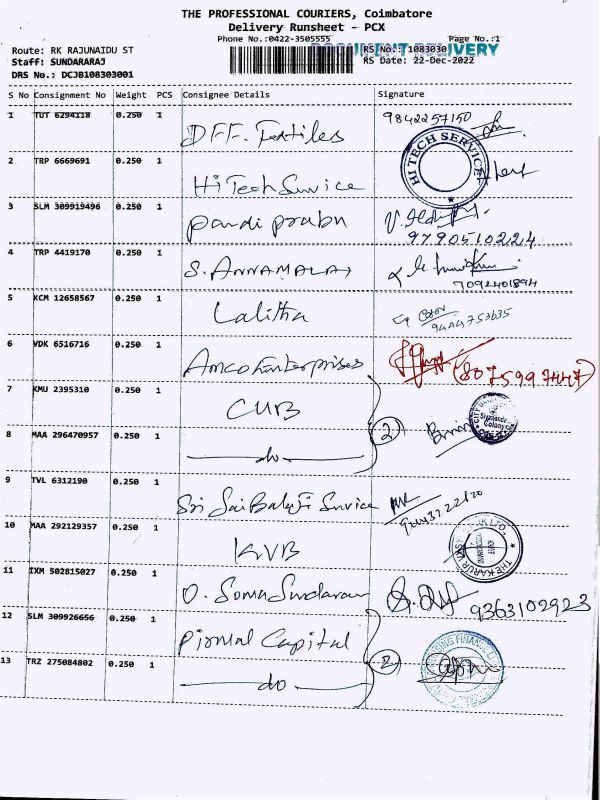 THE PROFESSIONAL COURIERS, Coimbatore
Delivery Runsheet - PCX
Phone No.:0422-3505555 Page No.:1
Route: RK RAJUNAIDU ST RS No.: 1083030 DELIVERY
Staff: SUNDARARAJ RS Date: 22-Dec-2022
DRS No.: DCJB108303001
S No Consignment No Weight PCS Consignee Details Signature
1 TUT 6294118 0.250 1 DFF. Textiles 9842257150
2 TRP 6669691 0.250 1 Hi Tech Service HI TECH SERVICE
3 SLM 309919496 0.250 1 pandi prabu 9790510224
4 TRP 4419170 0.250 1 S. ANNAMALAI 7092401894
5 KCM 12658567 0.250 1 Lalitha 9444753635
6 VDK 6516716 0.250 1 Amco Enterprises
7 KMU 2395310 0.250 1 CUB 2
8 MAA 296470957 0.250 1 do
9 TVL 6312190 0.250 1 Sri Sai Balaji Service
10 MAA 292129357 0.250 1 KVB
11 IXM 502815027 0.250 1 O. Soma Sundaram 9363102923
12 SLM 309926656 0.250 1 Pirmal Capital 2
13 TRZ 275084802 0.250 1 do